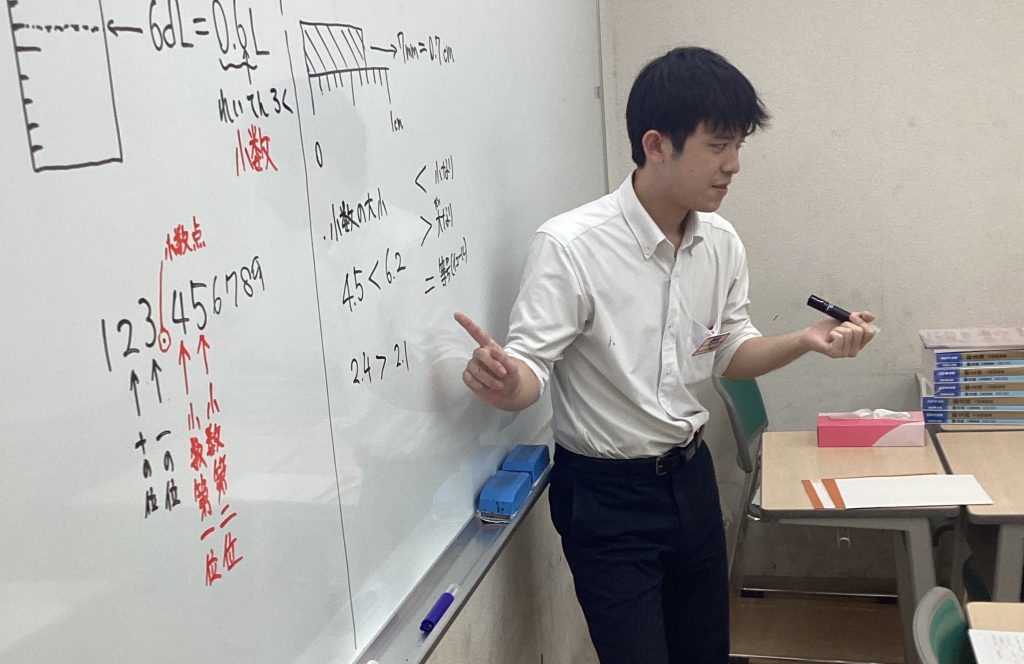 6dL=0.6L
れいてんろく
小数
7mm=0.7cm
1cm
0
小数点
123.456789
十の位
一の位
小数第一位
小数第二位
・小数の大小
< 小なり
> 大なり
= 等号(イコール)
4.5<6.2
2.4>2.1